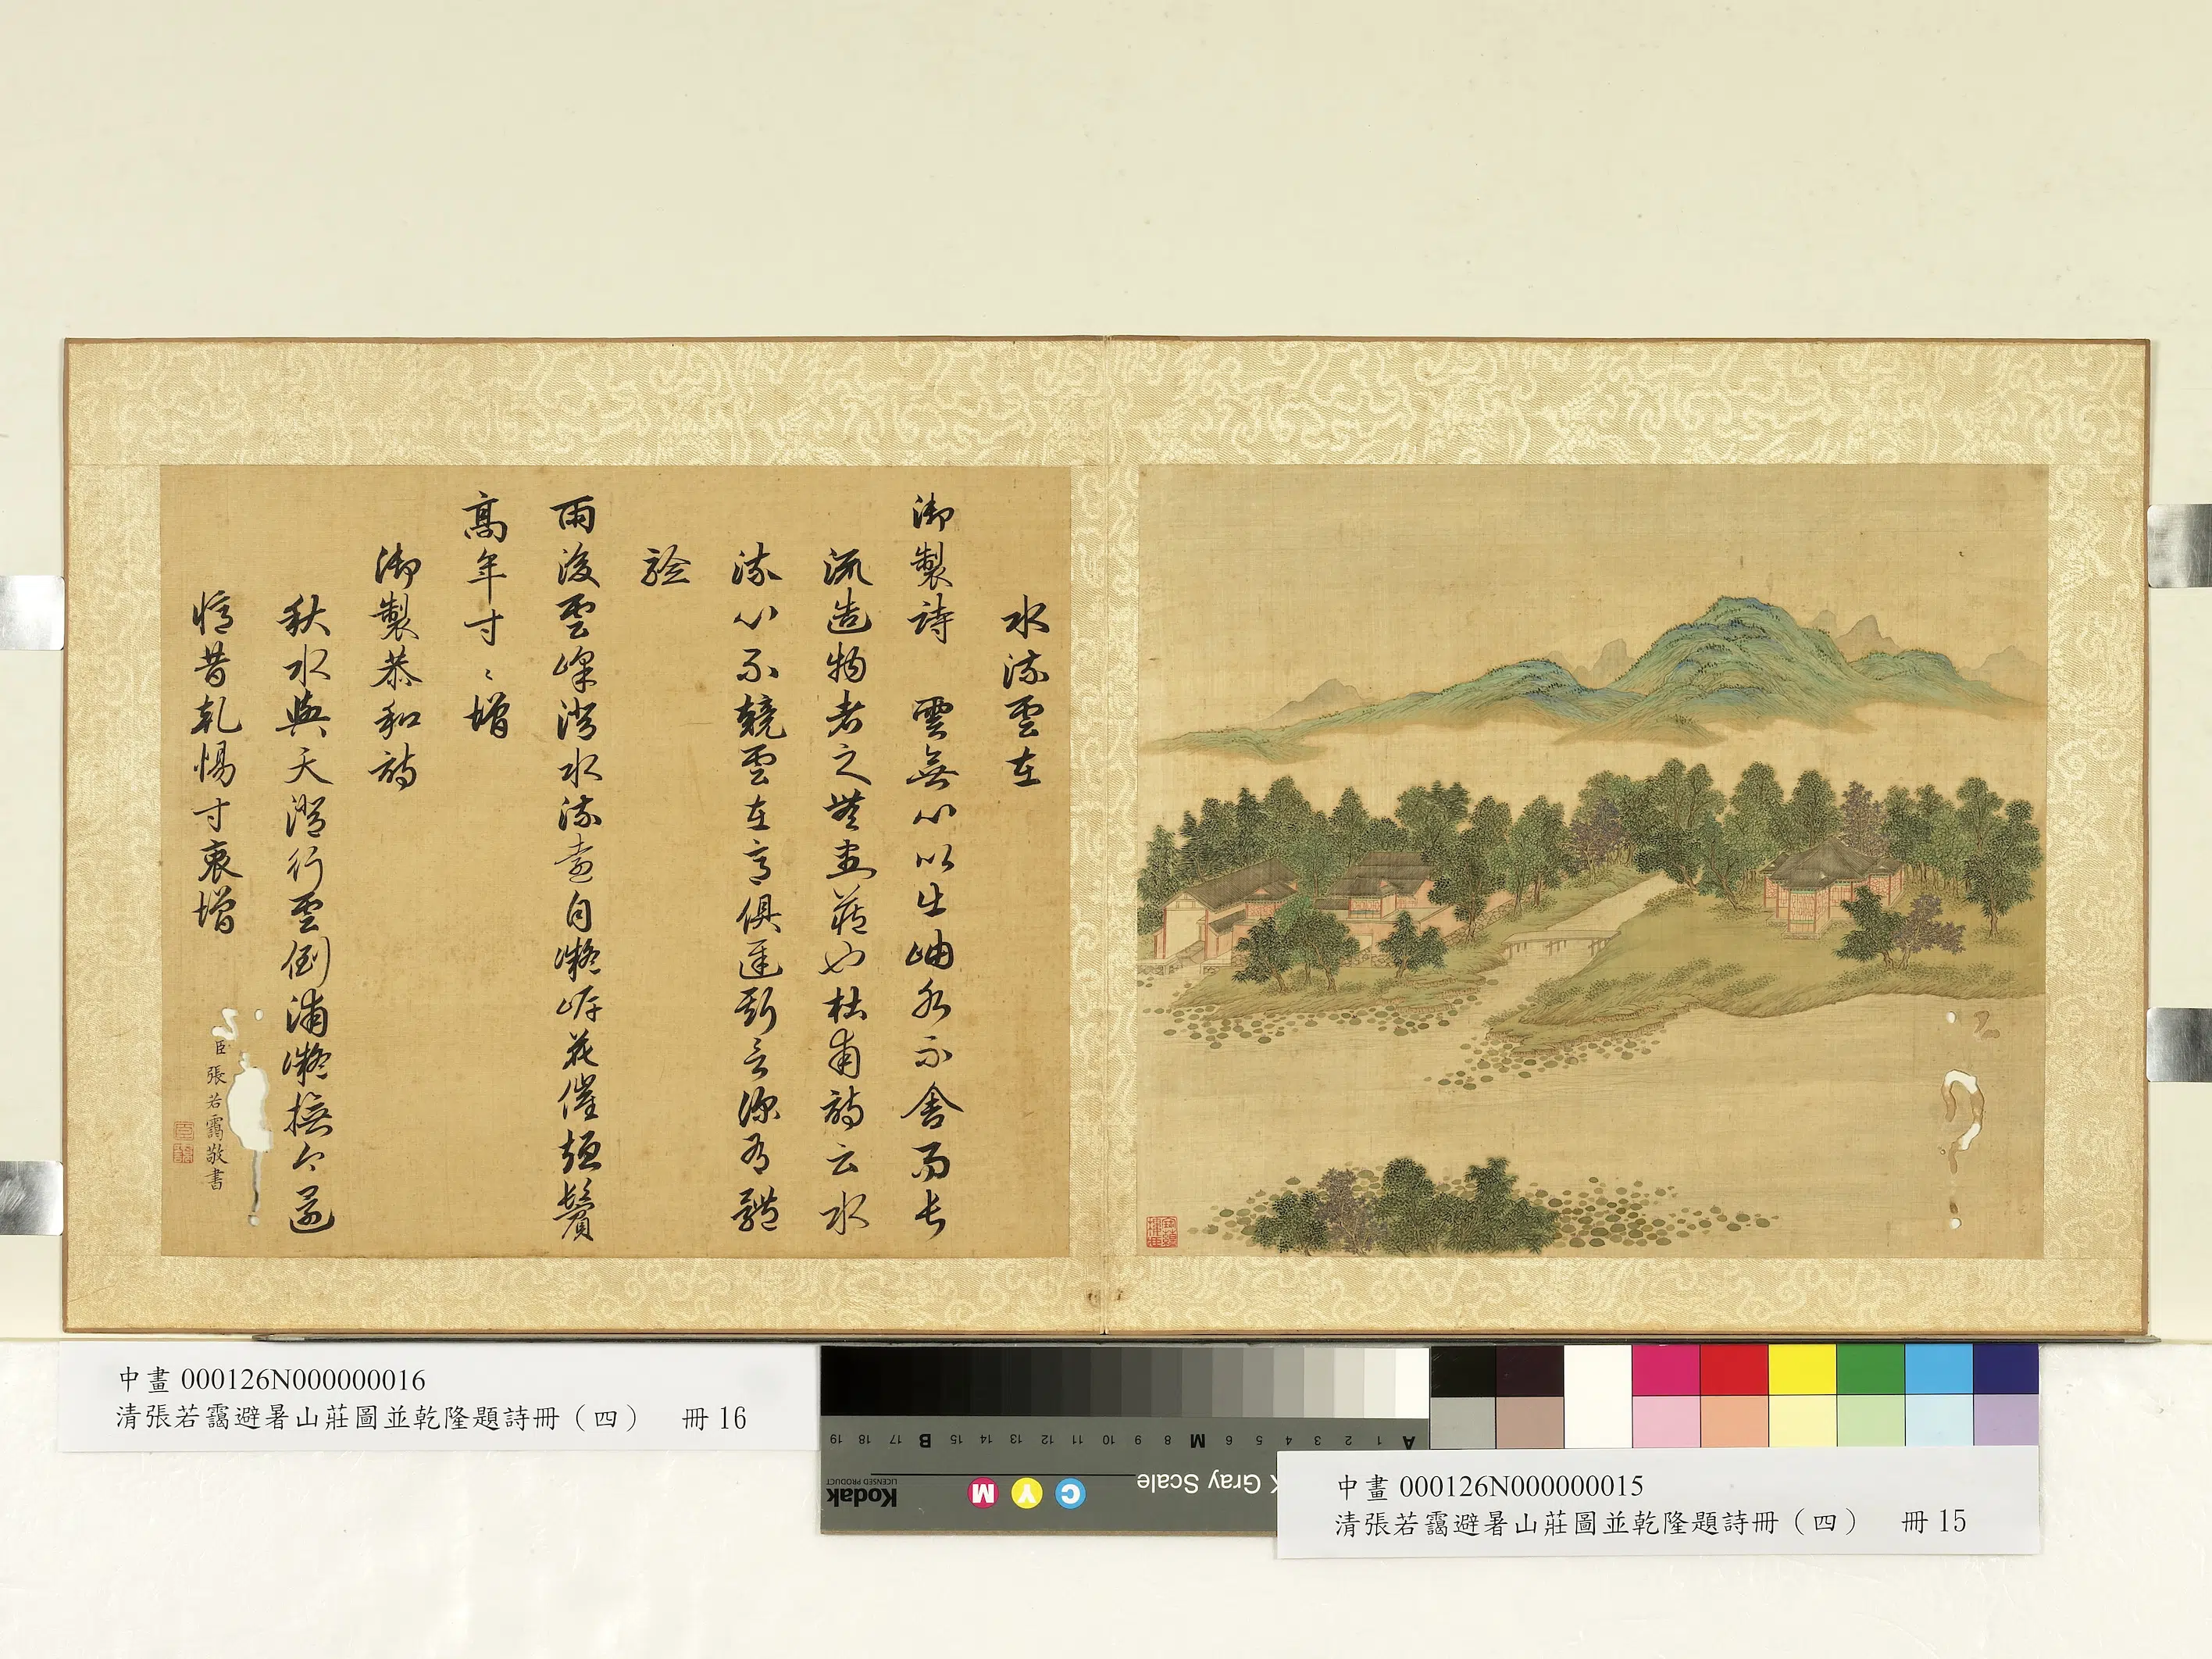 水流雲在
御製詩 雲無心以出岫水不舍而長
流造物者之無盡藏也杜甫詩云水
流心不競雲在意俱遲斯言深有體
驗
雨後雲峰澄水流遠自凝岸花催短鬢
高年寸〻增
御製恭和詩
秋水與天澄行雲倒浦凝撫今還
憶昔乾惕寸衷增
臣張若靄敬書
中畫 000126N000000016
清張若靄避暑山莊圖並乾隆題詩冊（四） 冊 16
中畫 000126N000000015
清張若靄避暑山莊圖並乾隆題詩冊（四） 冊 15
A 1 2 3 4 5 6 M 8 9 10 11 12 13 14 15 B 17 18 19
Kodak
LICENSED PRODUCT
Gray Scale
C Y M